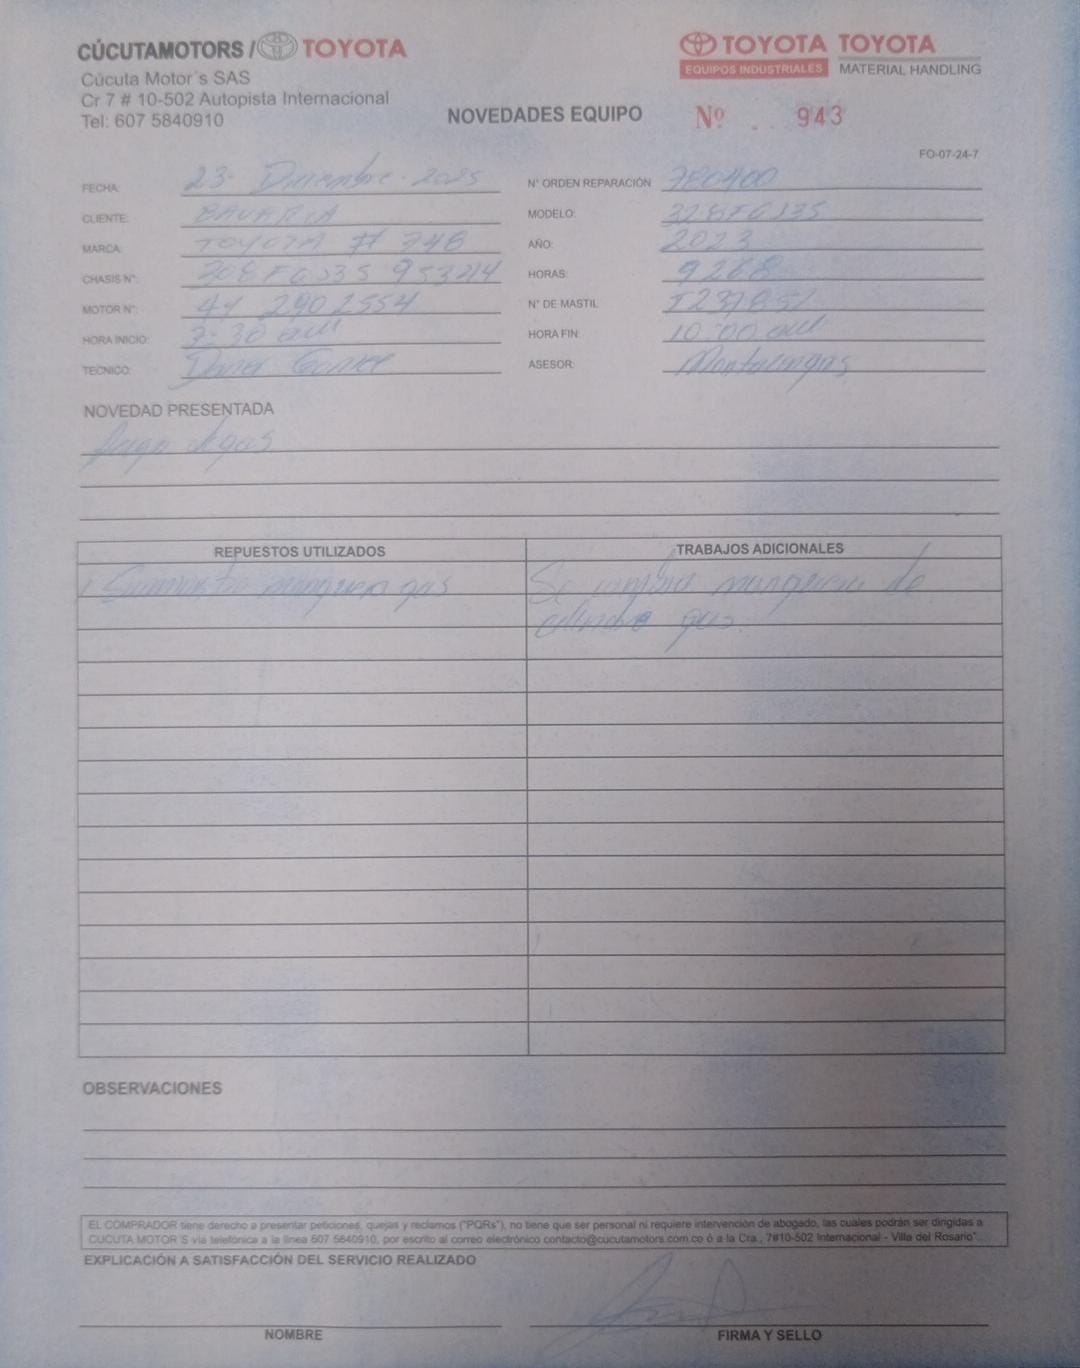 CÚCUTAMOTORS / TOYOTA
Cúcuta Motor´s SAS
Cr 7 # 10-502 Autopista Internacional
Tel: 607 5840910
TOYOTA TOYOTA
EQUIPOS INDUSTRIALES MATERIAL HANDLING
NOVEDADES EQUIPO Nº 943
FO-07-24-7
FECHA: 23- Diciembre - 2025 N° ORDEN REPARACIÓN 780400
CLIENTE: BAVARIA MODELO: 328FGJ35
MARCA: TOYOTA # 748 AÑO: 2023
CHASIS N°: 308FGJ35 95324 HORAS: 9268
MOTOR N°: 4Y 2902554 N° DE MASTIL
HORA INICIO: 7:30 am HORA FIN: 10:00 am
TECNICO: ASESOR:
NOVEDAD PRESENTADA
gas
REPUESTOS UTILIZADOS TRABAJOS ADICIONALES
1 manguera gas Se cambia manguera de
cilindro gas.
OBSERVACIONES
EL COMPRADOR tiene derecho a presentar peticiones, quejas y reclamos ("PQRs"), no tiene que ser personal ni requiere intervención de abogado, las cuales podrán ser dirigidas a
CUCUTA MOTOR´S via telefónica a la línea 607 5840910, por escrito al correo electrónico contacto@cucutamotors.com.co ó a la Cra., 7#10-502 Internacional - Villa del Rosario".
EXPLICACIÓN A SATISFACCIÓN DEL SERVICIO REALIZADO
NOMBRE FIRMA Y SELLO